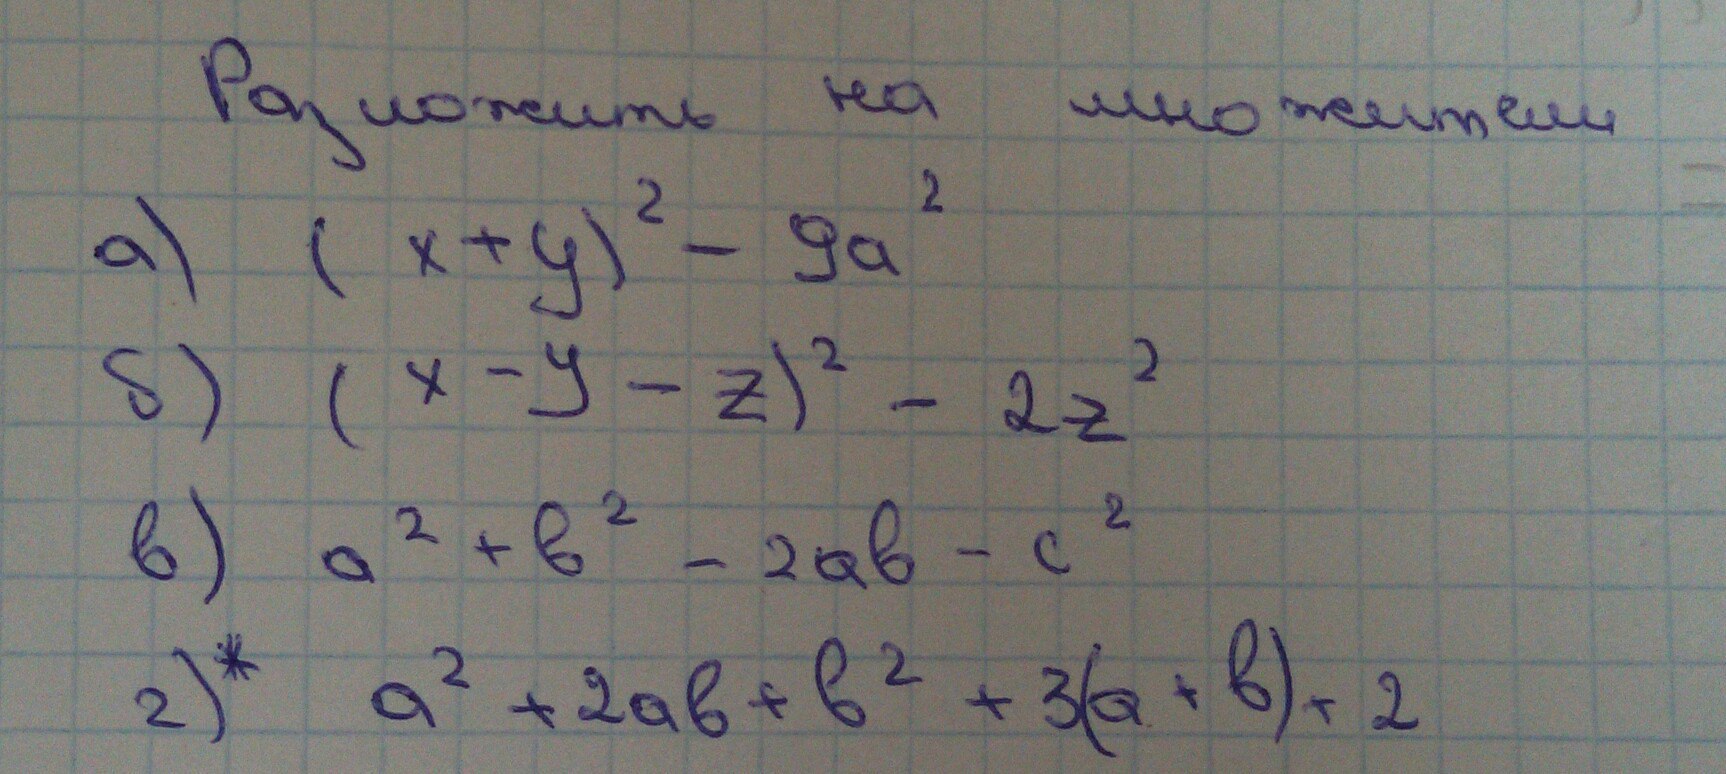 Разложить на множители
а) (x+y)² - 9a²
б) (x - y - z)² - 2z²
в) a² + b² - 2ab - c²
г)* a² + 2ab + b² + 3(a + b) + 2